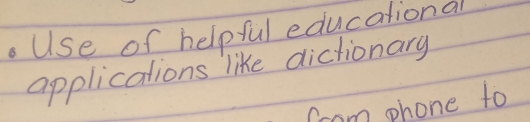 • Use of helpful educational
applications like dictionary
from phone to